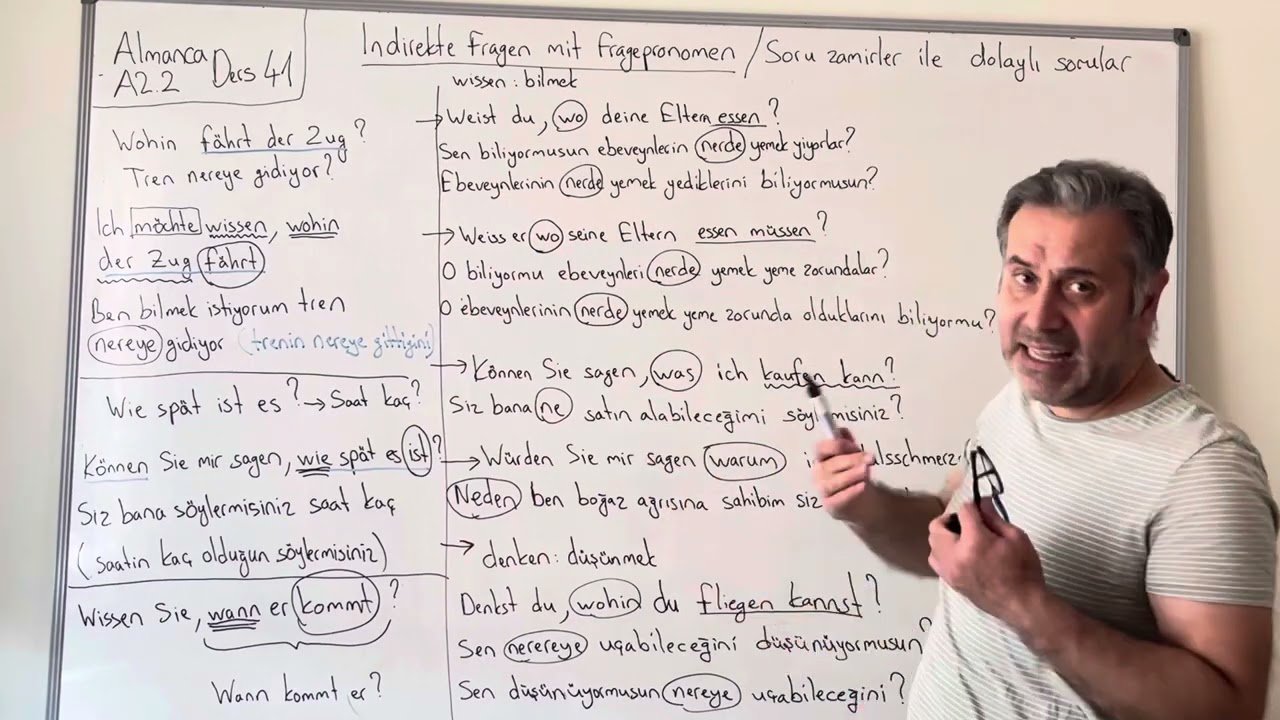 Almanca
A2.2 Ders 41
Indirekte Fragen mit Fragepronomen / Soru zamirler ile dolaylı sorular
Wohin fährt der Zug?
Tren nereye gidiyor?
Ich möchte wissen, wohin
der Zug fährt
Ben bilmek istiyorum tren
nereye gidiyor (trenin nereye gittiğini)
Wie spät ist es? → Saat kaç?
Können Sie mir sagen, wie spät es ist?
Siz bana söylermisiniz saat kaç
(saatin kaç olduğun söylermisiniz)
Wissen Sie, wann er kommt?
Wann kommt er?
wissen : bilmek
→ Weist du, wo deine Eltern essen?
Sen biliyormusun ebeveynlerin nerde yemek yiyorlar?
Ebeveynlerinin nerde yemek yediklerini biliyormusun?
→ Weiss er wo seine Eltern essen müssen?
O biliyormu ebeveynleri nerde yemek yeme zorundalar?
O ebeveynlerinin nerde yemek yeme zorunda olduklarını biliyormu?
→ Können Sie sagen, was ich kaufen kann?
Siz bana ne satın alabileceğimi söylermisiniz?
→ Würden Sie mir sagen warum
Neden ben boğaz ağrısına sahibim siz
→ denken : düşünmek
Denkst du, wohin du fliegen kannst?
Sen nerereye uçabileceğini düşünüyormusun?
Sen düşünüyormusun nereye uçabileceğini?